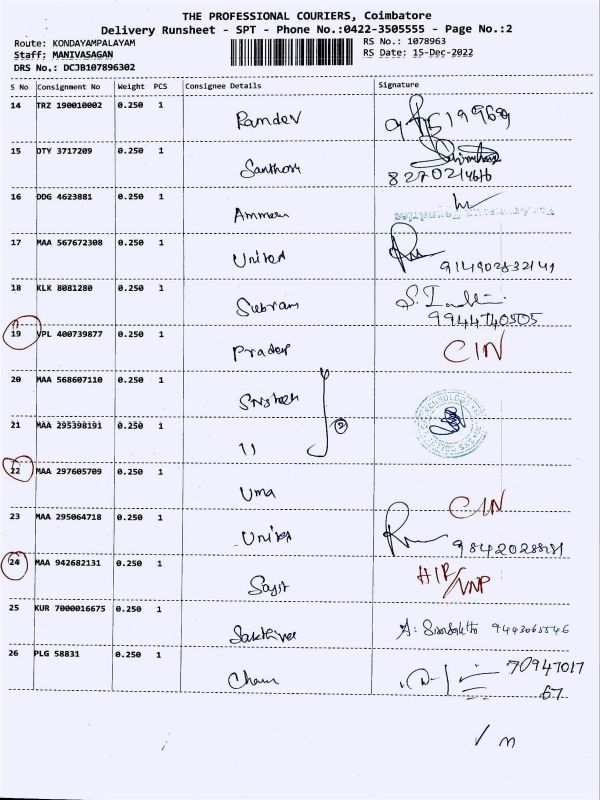 THE PROFESSIONAL COURIERS, Coimbatore
Delivery Runsheet - SPT - Phone No.:0422-3505555 - Page No.:2
Route: KONDAYAMPALAYAM RS No.: 1078963
Staff: MANIVASAGAN RS Date: 15-Dec-2022
DRS No.: DCJB107896302
S No Consignment No Weight PCS Consignee Details Signature
14 TRZ 190010002 0.250 1 Ramdev
15 OTY 3717209 0.250 1 Santhosh
8270214616
16 DDG 4623881 0.250 1
17 MAA 567672308 0.250 1 United
914902832141
18 KLK 8081280 0.250 1 Subram
9944740505
19 VPL 400739877 0.250 1 Pradeep CIN
20 MAA 568607110 0.250 1
21 MAA 295398191 0.250 1 11 2
22 MAA 297605709 0.250 1 Uma CIN
23 MAA 295064718 0.250 1 United
24 MAA 942682131 0.250 1 Sajit
25 KUR 7000016675 0.250 1 Sakthivel 9443065546
26 PLG 58831 0.250 1 70947017
67